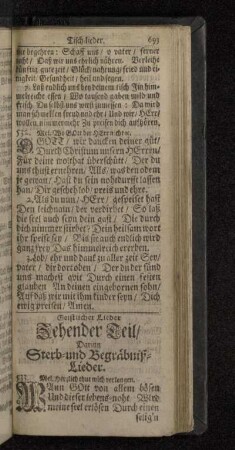 Tisch-lieder. 693
wir begehren: Schaff uns/ o vater/ ferner
recht/ Daß wir uns ehrlich nähren. Verleih
künftig gute zeit/ Glück/ nahrung/ fried und ei-
nigkeit/ Gesundheit/ heil und segen.
7. Laß endlich uns bey deinem tisch Im him-
melreiche essen/ Wo tausend gaben wild und
frisch Du selbst uns wirst zumessen: Da wird
man schmecken freud und ehr/ Und wir/ HErr/
wollen immermehr Zu preisen dich aufhören.
532. Mel. Wo GOtt der HErr nicht 2c.
O GOTT/ wir dancken deiner güt/
Durch Christum unsern HErren/
Für deine wolthat überschütt/ Der du
uns thust ernehren/ Alls/ was den odem
je gewan/ Hast du sein nohtdurfft lassen
han/ Dir geschehe lob/ preis und ehre.
2. Als du nun/ HErr/ gespeiset hast
Den leichnam/ der verdirbet/ So laß
die seel auch seyn dein gast/ Die durch
dich nimmer stirbet: Dein heilsam wort
ihr speise sey/ Biß sie auch endlich wird
gantz frey Das himmelreich ererben.
3. Lob/ ehr und danck zu aller zeit Sey/
vater/ die dort oben/ Der du der sünd
uns machest qvit Durch einen feinen
glauben An deinen eingebornen sohn/
Auf daß wir mit ihm kinder seyn/ Dich
ewig preisen/ Amen.
Geistlicher Lieder
Zehender Teil/
Darinn
Sterb-und Begräbniß-
Lieder.
533. Mel. Hertzlich thut mich verlangen.
WAnn GOtt von allem bösen
Und dieser lebens-noht Wird
meine seel erlösen Durch einen
selig'n